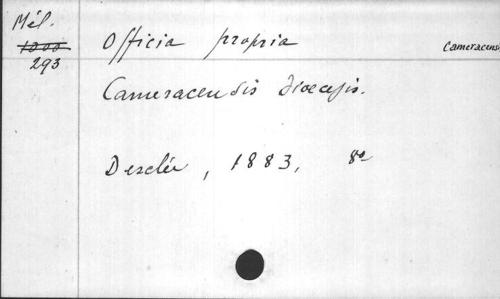 Mél.
1000
293
Officia propria
Cameracens
Cameracensis dioecesis.
Desclée, 1883, 8º